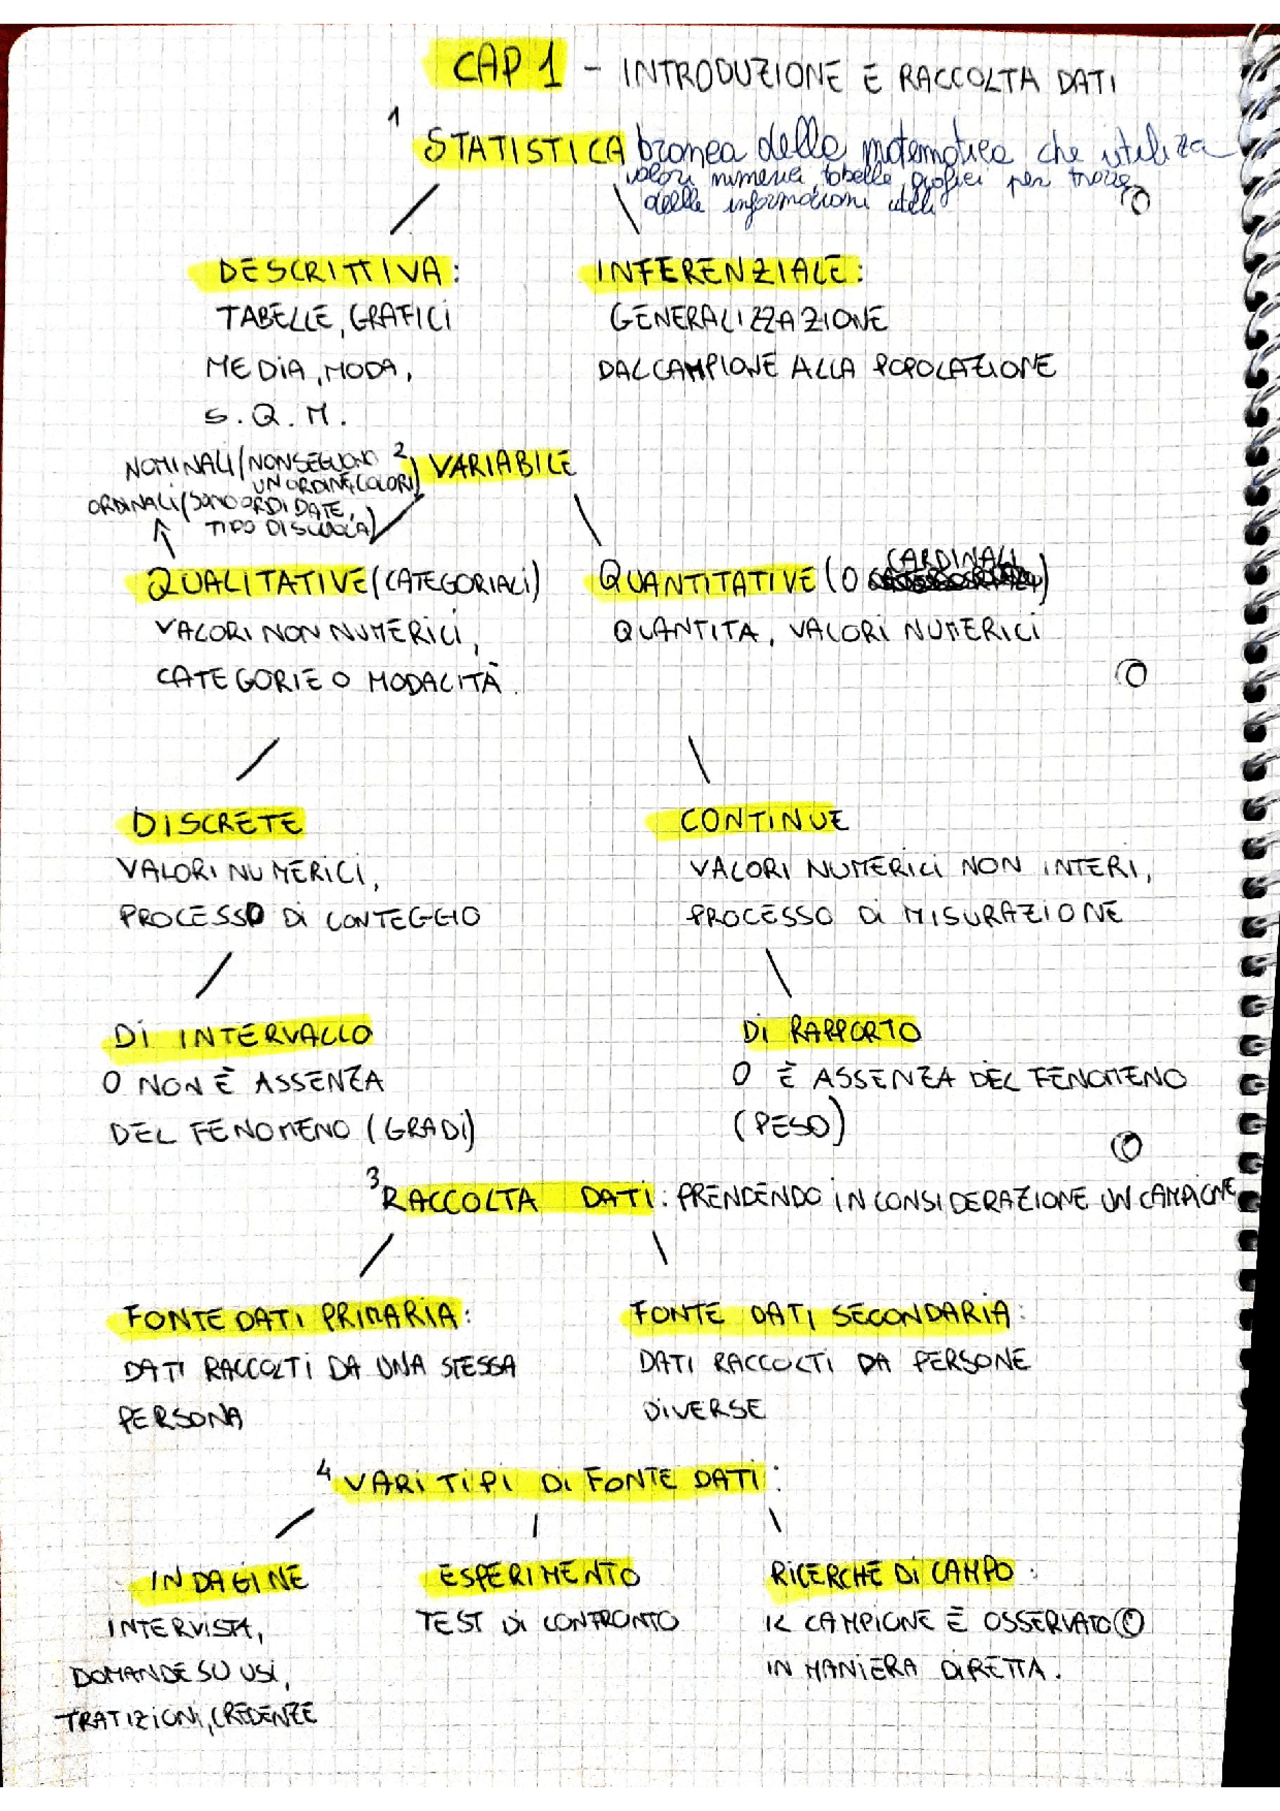 CAP 1 - INTRODUZIONE E RACCOLTA DATI
1 STATISTICA branca della matematica che utilizza
valori numerici, tabelle, grafici per trovare
delle informazioni utili
DESCRITTIVA:
TABELLE, GRAFICI
MEDIA, MODA,
S.Q.M.
INFERENZIALE:
GENERALIZZAZIONE
DAL CAMPIONE ALLA POPOLAZIONE
2 VARIABILE
NOMINALI (NON SEGUONO
UN ORDINE, COLORI)
ORDINALI (SONO ORDIDATE,
TIPO DI SCUOLA)
QUALITATIVE (CATEGORIALI)
VALORI NON NUMERICI,
CATEGORIE O MODALITÀ.
QUANTITATIVE (O CARDINALI)
QUANTITA, VALORI NUMERICI
DISCRETE
VALORI NUMERICI,
PROCESSO DI CONTEGGIO
CONTINUE
VALORI NUMERICI NON INTERI,
PROCESSO DI MISURAZIONE
DI INTERVALLO
O NON È ASSENZA
DEL FENOMENO (GRADI)
DI RAPPORTO
O È ASSENZA DEL FENOMENO
(PESO)
3 RACCOLTA DATI: PRENDENDO IN CONSIDERAZIONE UN CAMPIONE
FONTE DATI PRIMARIA:
DATI RACCOLTI DA UNA STESSA
PERSONA
FONTE DATI SECONDARIA:
DATI RACCOLTI DA PERSONE
DIVERSE
4 VARI TIPI DI FONTE DATI:
INDAGINE
INTERVISTA,
DOMANDE SU USI,
TRATIZIONI, CREDENZE
ESPERIMENTO
TEST DI CONFRONTO
RICERCHE DI CAMPO:
IL CAMPIONE È OSSERVATO
IN MANIERA DIRETTA.